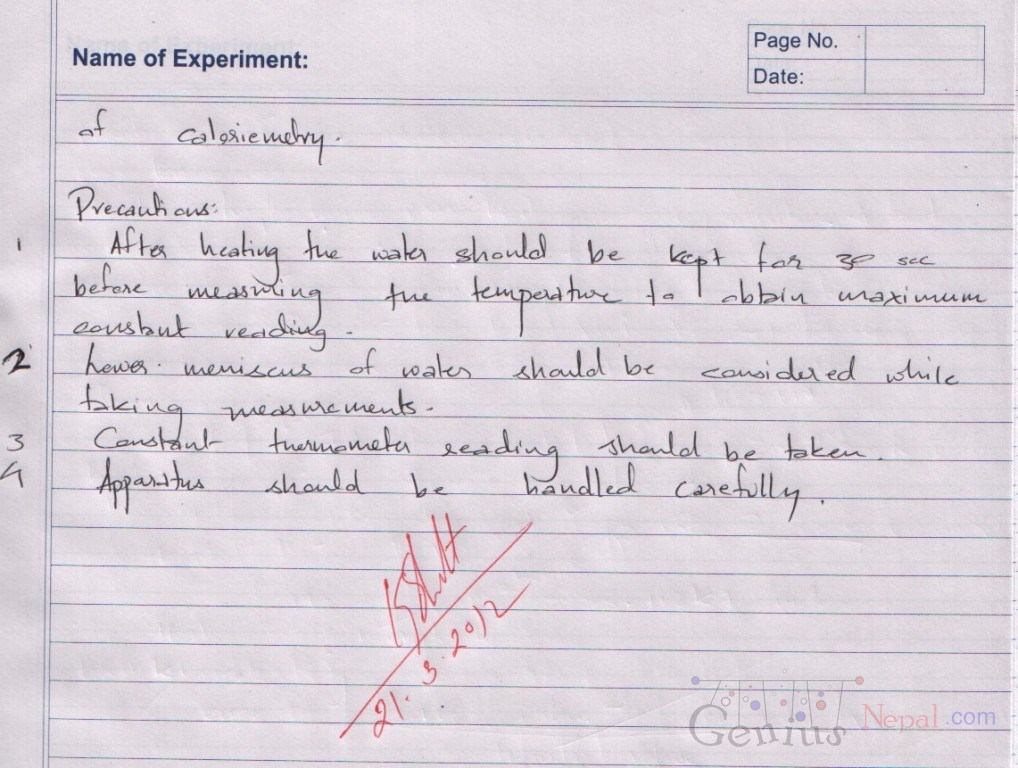 Name of Experiment:
Page No.
Date:
of caloriemetry.
Precautions:
1 After heating the water should be kept for 30 sec
before measuring the temperature to obtain maximum
constant reading.
2 Lower meniscus of water should be considered while
taking measurements.
3 Constant thermometer reading should be taken.
4 Apparatus should be handled carefully.
21.3.2012
Genius Nepal.com